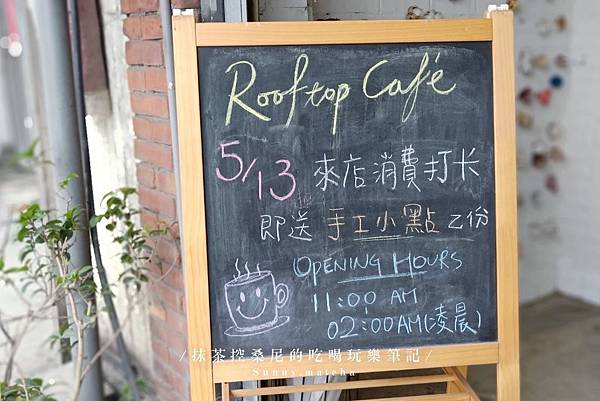 Rooftop Café
5/13 來店消費打卡
即送 手工小點乙份
OPENING HOURS
11:00 AM
02:00AM(凌晨)
/抹茶控桑尼的吃喝玩樂筆記/
Sunny.matcha